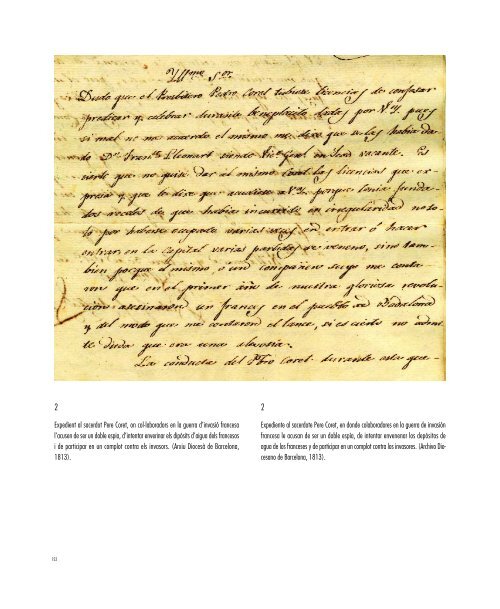 Yllmo Sor.
Dudo que el Presbitero Pedro Coret tubiese licencias de confesar
predicar y celebrar durante benepla&ito dadas por V.Y. pues
si mal no me acuerdo el mismo me dixo que se las habia da-
do Dn. Franco. Llomart siendo Vico. Genl. en Sede vacante. Es
cierto que no quise dar al mismo Coret las licencias que ex-
presa y que le dixe que acudiese a V.Y. porque tenia funda-
dos recelos de que habia incurrido en irregularidad noto-
ria por haberse ocupado varias veces en entrar ó hacer
entrar en la Capital varias partidas de veneno, sino tam-
bien porque el mismo, ó un compañero suyo me conta-
ron que en el primer año de nuestra gloriosa revolu-
cion asesinaron un frances en el pueblo de Badalona
y del modo que me contaron el lance, si es cierto no admi-
te duda que era una alevosia.
La conducta del Pbro Coret durante esta gue-
2
Expedient al sacerdot Pere Coret, on col·laboradors en la guerra d'invasió francesa
l'acusen de ser un doble espia, d'intentar enverinar els dipòsits d'aigua dels francesos
i de participar en un complot contra els invasors. (Arxiu Diocesà de Barcelona,
1813).
2
Expediente al sacerdote Pere Coret, en donde colaboradores en la guerra de invasión
francesa le acusan de ser un doble espía, de intentar envenenar los depósitos de
agua de los franceses y de participar en un complot contra los invasores. (Archivo Dio-
cesano de Barcelona, 1813).